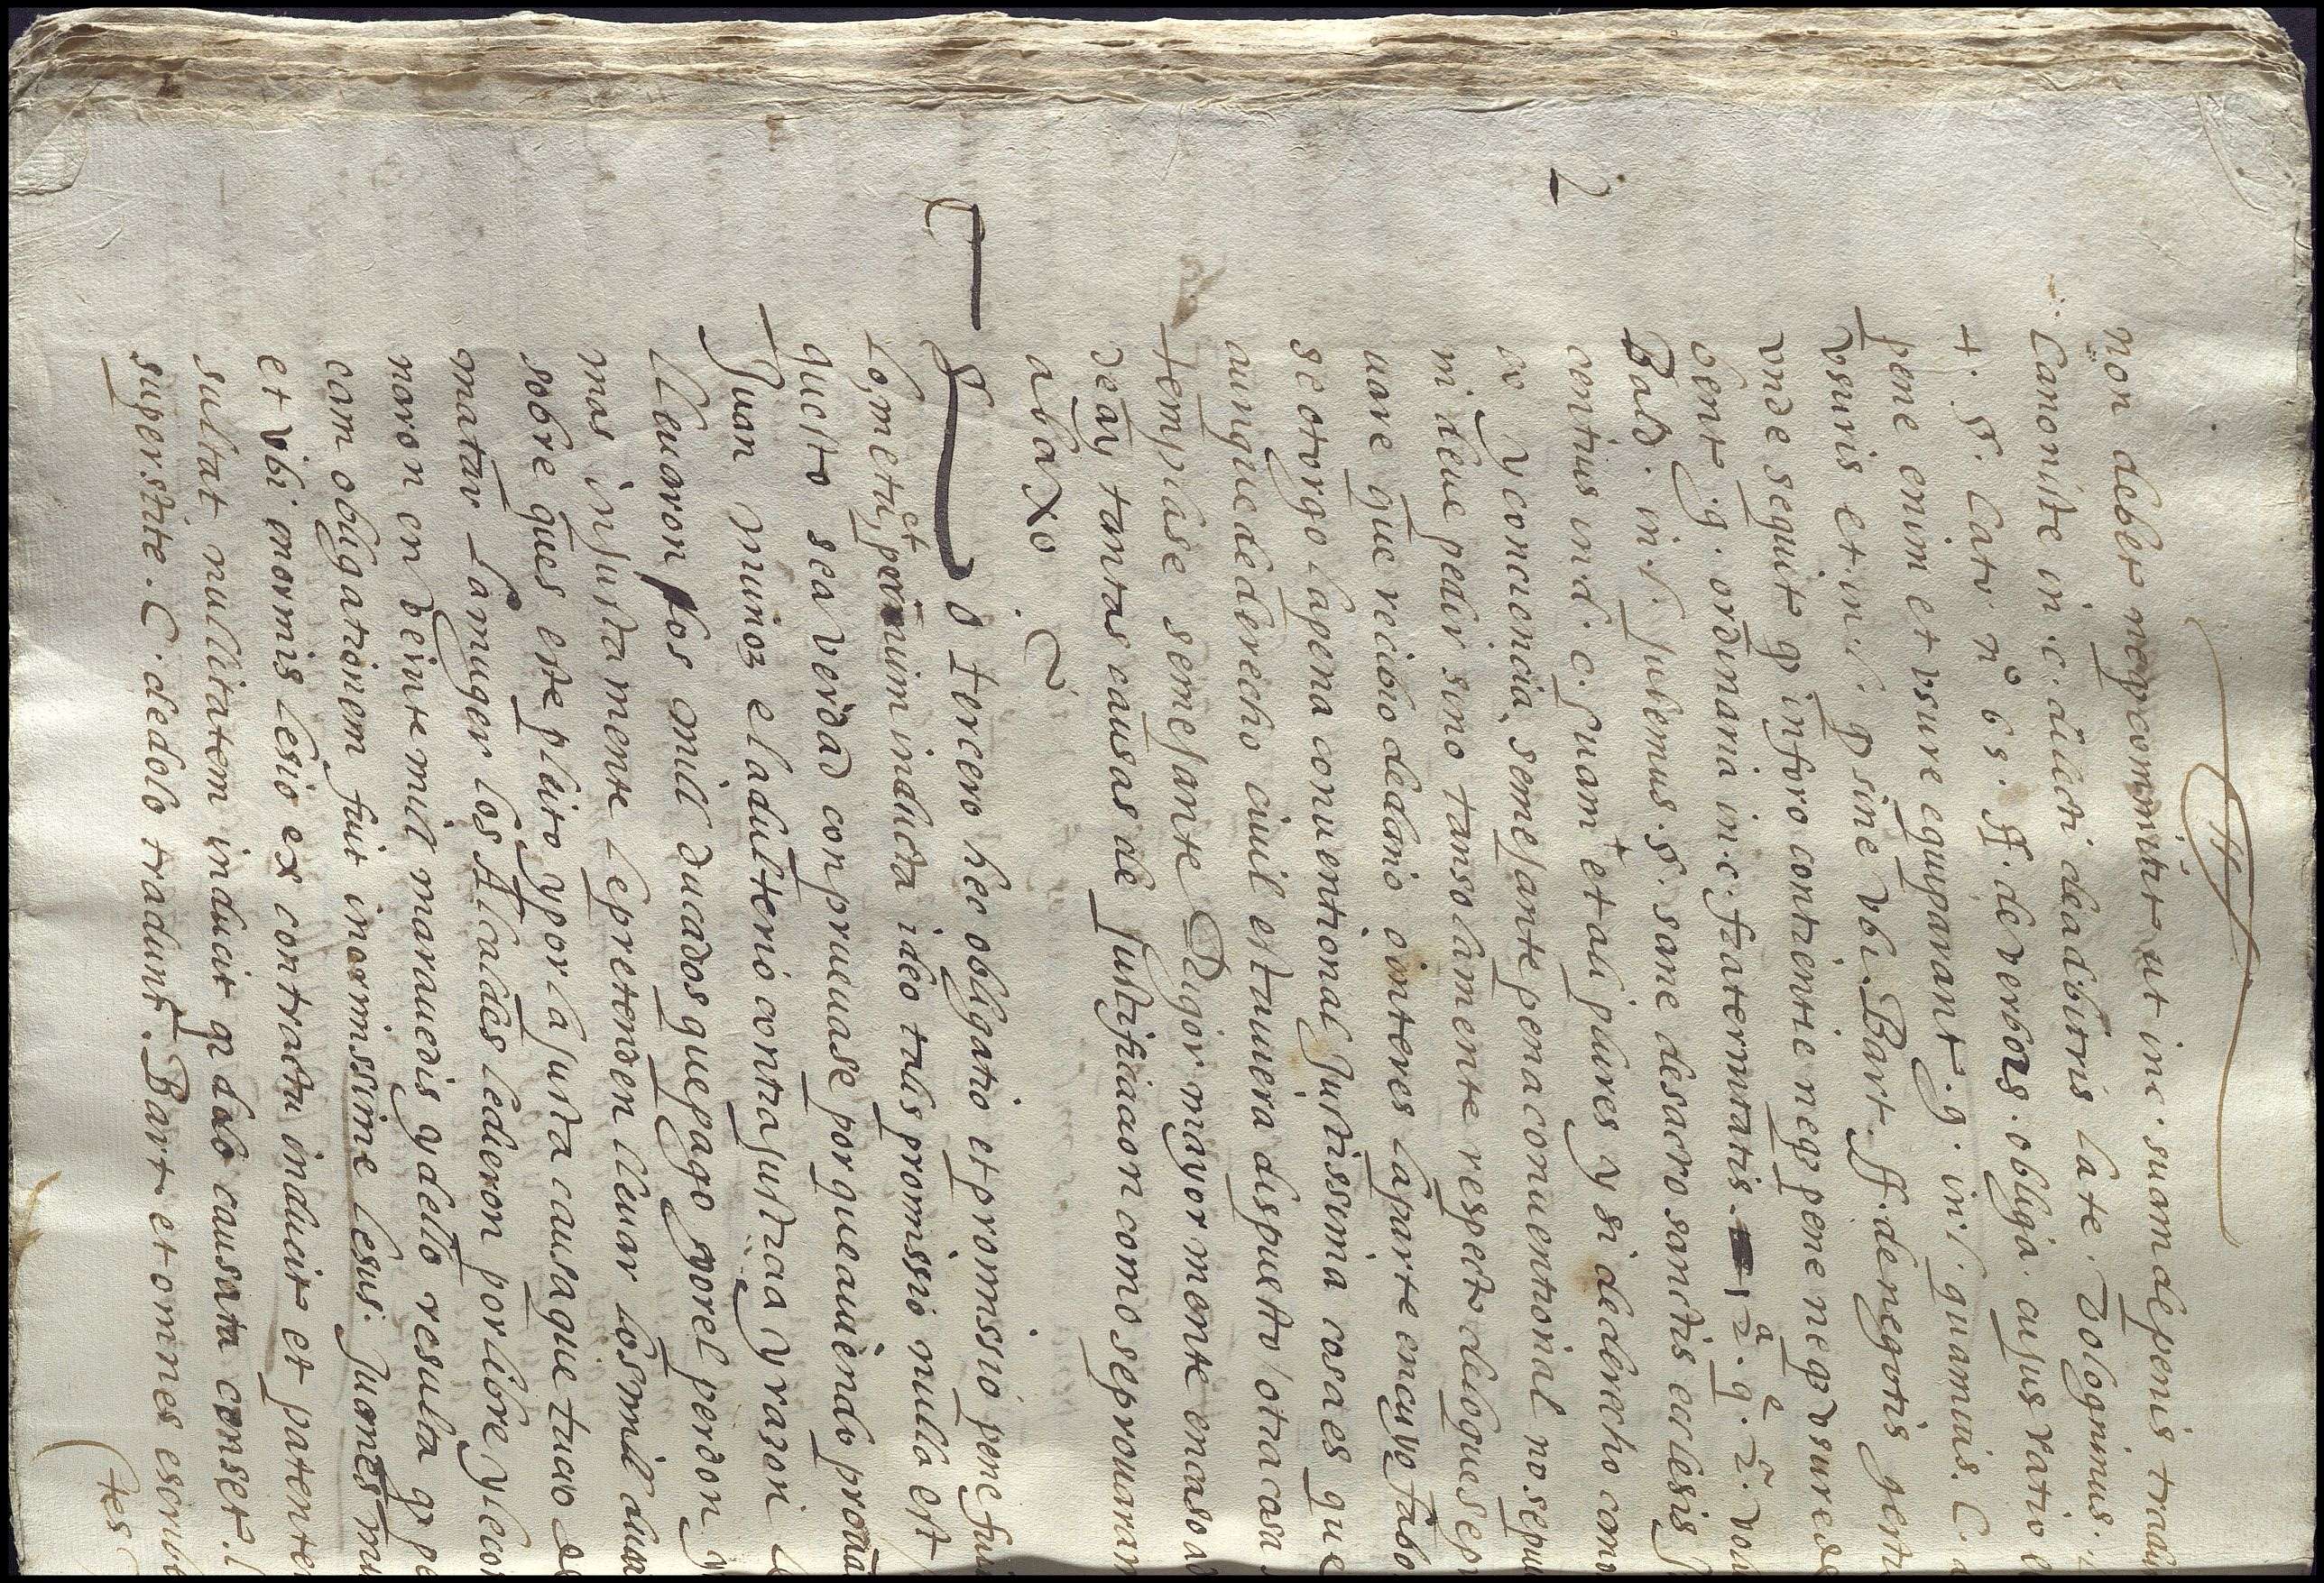 non debet neq̃ commitit ut in c. suam de penis tradit
Canoniste in c. dilecti de arbitris late. Bologninus.
4. §. Cato nº 65. ff. de verbors. obliga. cujus ratio
pene enim et usure equiparant. g. in l. quamuis. C.
usuris et in l. q̃ sine ubi. Bart. ff. de negotis gesti
unde sequit q̃ in foro contientie neq̃ pene neq̃ usure de
bent g. ordinaria in c. fraternitatis 12. q. 2.
Bald. in l. jubemus. §. sane de sacro santis eclesis
centius in d. c. suam et ali plures y si de derecho cano
co y conciencia semejante pena conuentional no se pu
ni deue pedir sino tan solamente respecto de lo que se
uare que recibio de daño o interes la parte en cuyo fabo
se otorgo la pena conuentional justissima cosa es que
aunque de derecho ciuil estuuiera dispuesto otra cosa
templase semejante Rigor mayor mente en caso a
deay tantas causas de justificacion como se prouaran
abaxo.
§ 3 tercero hec obligatio et promissio pene fui
Cometi et per nim inducta ideo talis promissio nulla est
questo sea verdad con prueuase por que auiendo
Juan munoz el adulterio contra justicia y razon
lleuaron los mil ducados que pago por el perdon y
mas injustamente le pretenden lleuar los mil duca
sobre ques este pleito y por la justa causa que tuuo de
matar la muger los Alcaldes le dieron por libre y le co
naron en veinte mil marauedis y dello resulta q̃ p
cam obligationem fuit inormissime lesus.
et ubi inormis lesio ex contractu inducit et patenter
sultat nullitatem inducit q̃ dolo causata censet.
superstite. C. de dolo tradunt. Bart. et omnes escrib
(tes